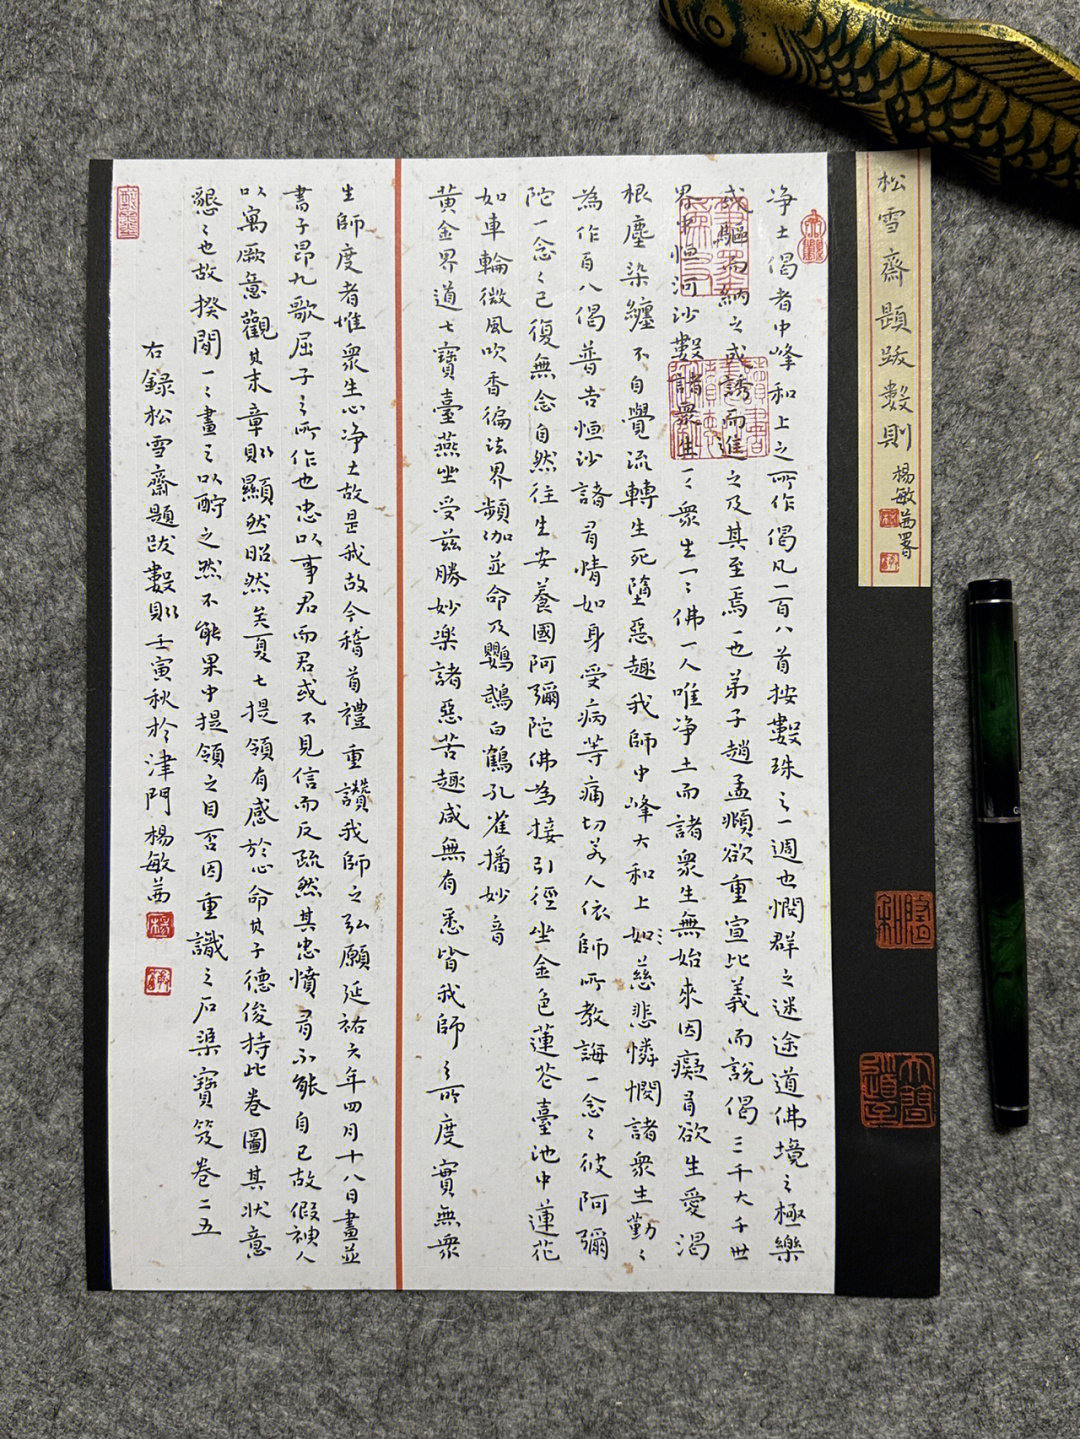 松雪齋題跋數則
楊敏茜署
净土偈者中峰和上之所作偈凡一百八首按數珠之一週也憫群之迷途道佛境之極樂
或驅而納之或誘而進之及其至焉一也弟子趙孟頫欲重宣比義而說偈三千大千世
界中恒河沙數諸衆生一々衆生一々佛一人唯净土而諸衆生無始來因癡有欲生愛渴
根塵染纏不自覺流轉生死墮惡趣我師中峰大和上如々慈悲憐憫諸衆生勤々
為作百八偈普告恒沙諸有情如身受病等痛切若人依師所教誨一念々彼阿彌
陀一念々已復無念自然往生安養國阿彌陀佛為接引徑坐金色蓮花臺池中蓮花
如車輪微風吹香徧法界頻伽並命及鸚鵡白鶴孔雀播妙音
黃金界道七寶臺燕坐受兹勝妙楽諸惡苦趣咸無有悉皆我師之所度實無衆
生師度者惟衆生心净土故是我故今稽首禮重讚我師之弘願延祐六年四月十八日畫並
書子昂九歌屈子之所作也忠以事君而君或不見信而反疏然其忠憤有不能自已故假神人
以寓厥意觀其末章則顯然昭然矣夏七提領有感於心命其子德俊持此卷圖其状意
懇々也故揆閒一々畫之以酧之然不能果中提領之目否因重識之石渠寶笈卷二五
右録松雪齋題跋數則壬寅秋於津門楊敏茜